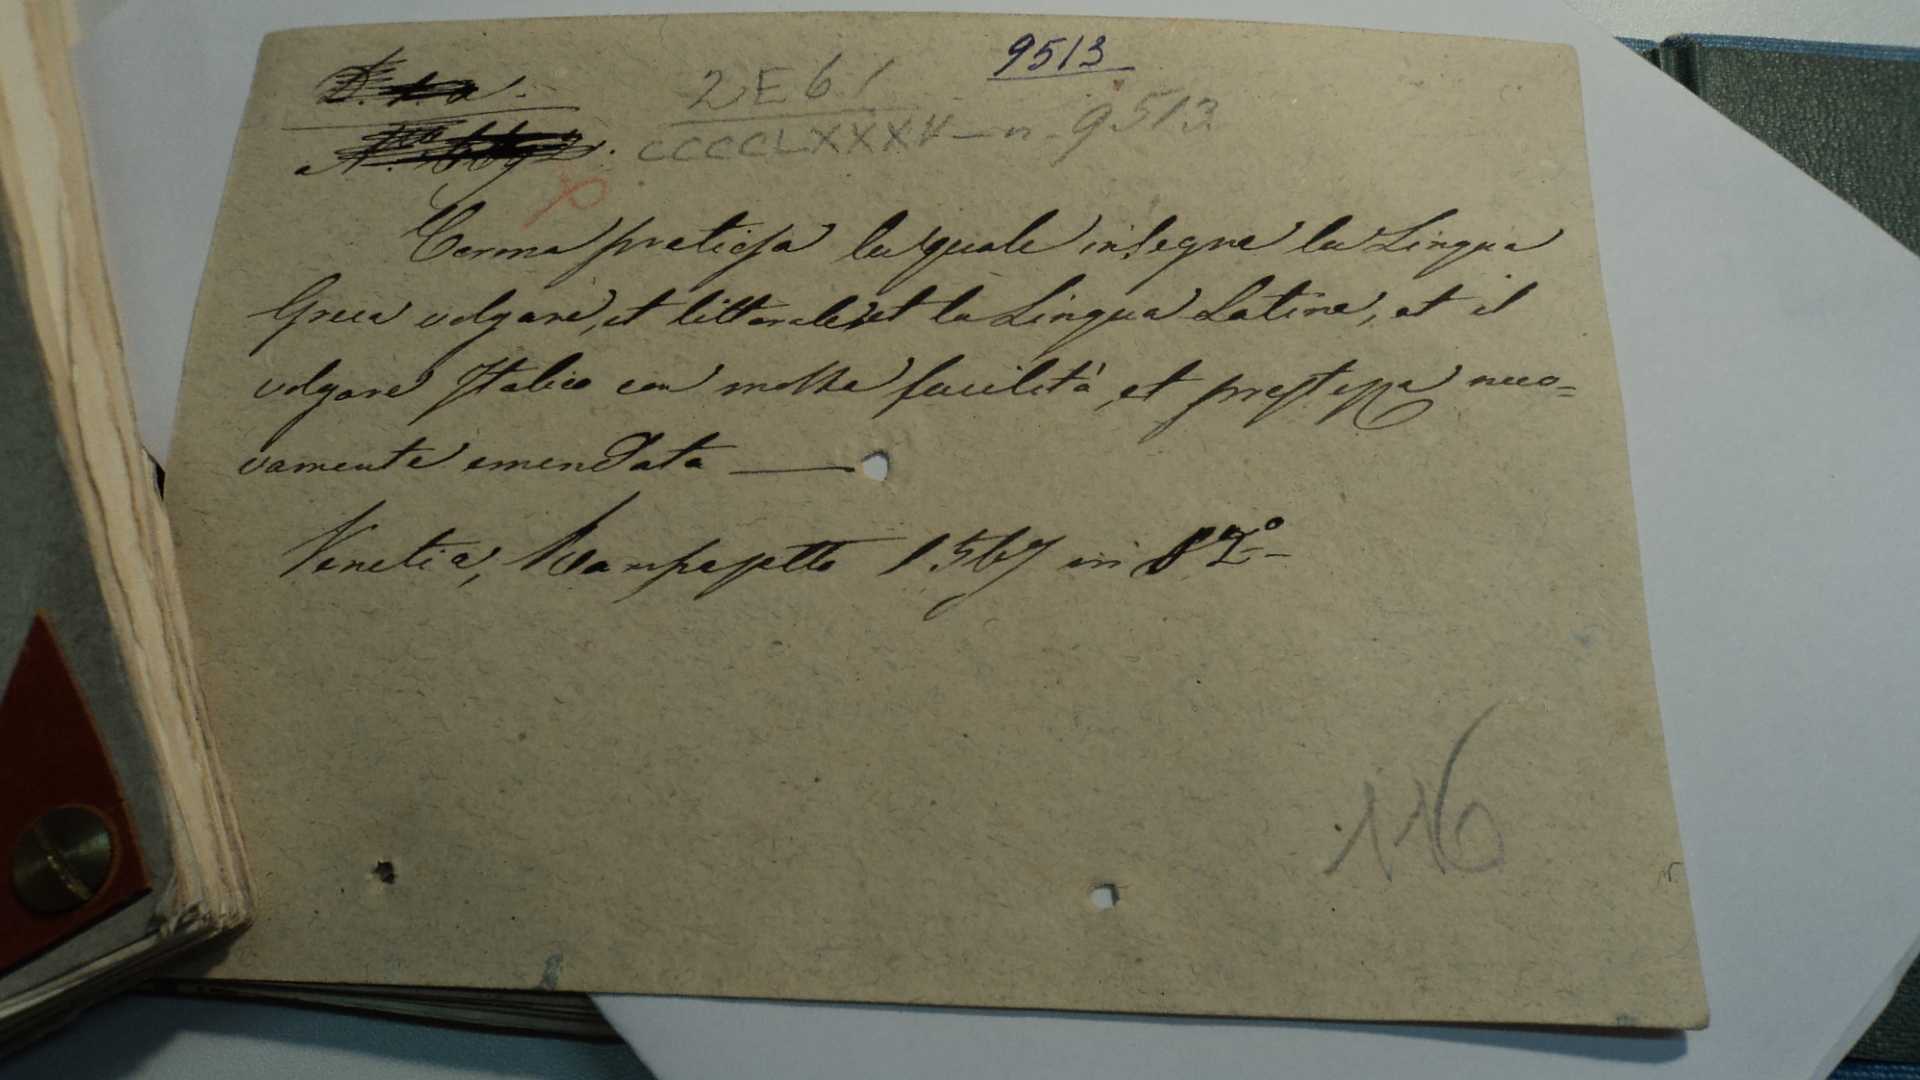 9513
2E61
CCCCLXXXV — n. 9513
Corona pretiosa la quale insegna la Lingua
Greca volgare, et litterale, et la Lingua Latina, et il
volgare Italico con molta facilità, et prestezza nuo=
vamente emendata ——
Venetia, Rampazetto 1567 in 12º
116